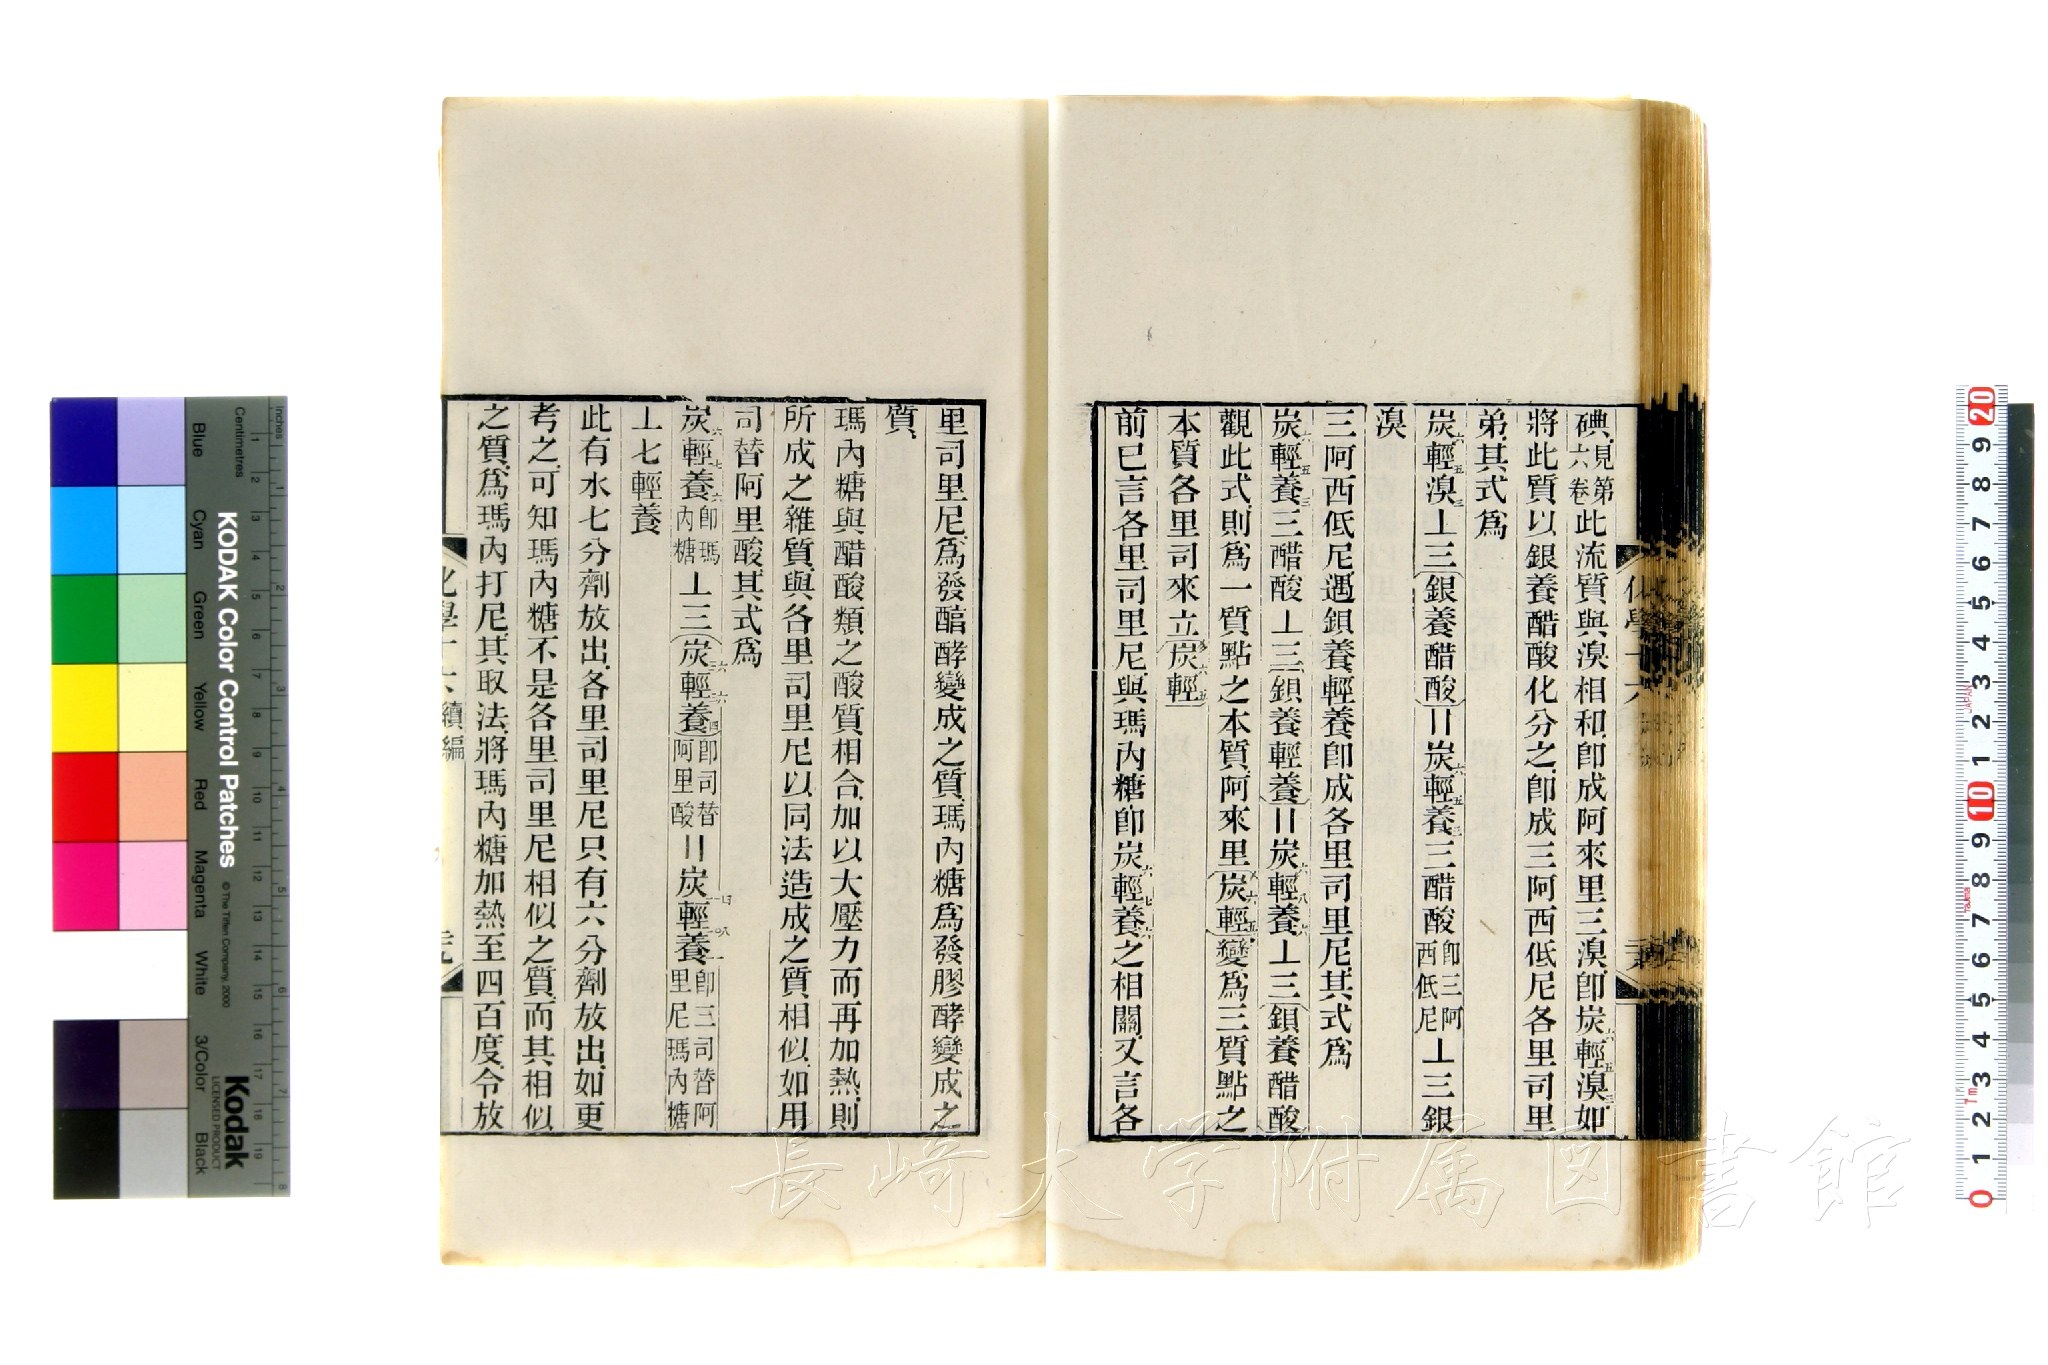 碘見第六卷此流質與溴相和卽成阿來里三溴卽炭六輕五溴三如
將此質以銀養醋酸化分之卽成三阿西低尼各里司里
弟其式爲
炭六輕五溴三丄三(銀養醋酸)〢炭六輕五養三三醋酸卽三阿西低尼丄三銀
溴
三阿西低尼遇鋇養輕養卽成各里司里尼其式爲
炭六輕五養三三醋酸丄三(鋇養輕養)〢炭六輕八養六丄三(鋇養醋酸)
觀此式則爲一質點之本質阿來里(炭六輕五)變爲三質點之
本質各里司來立(炭六輕五)
前已言各里司里尼與瑪內糖卽炭六輕七養六之相關又言各
化學十六
里司里尼爲發醅酵變成之質瑪內糖爲發膠酵變成之
質
瑪內糖與醋酸類之酸質相合加以大壓力而再加熱則
所成之雜質與各里司里尼以同法造成之質相似如用
司替阿里酸其式爲
炭六輕七養六卽瑪內糖丄三(炭三六輕三六養四)卽司替阿里酸〢炭輕養卽三司替阿里尼瑪內糖
丄七輕養
此有水七分劑放出各里司里尼只有六分劑放出如更
考之可知瑪內糖不是各里司里尼相似之質而其相似
之質爲瑪內打尼其取法將瑪內糖加熱至四百度令放
化學十六 續編
KODAK Color Control Patches
©The Tiffen Company, 2000
Kodak
LICENSED PRODUCT
Inches
Centimetres
Blue Cyan Green Yellow Red Magenta White 3/Color Black
長崎大学附属図書館
JAPAN